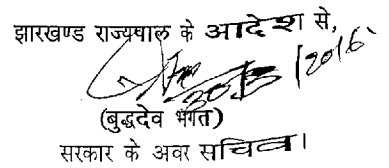 झारखण्ड राज्यपाल के आदेश से,
30/3/2016
(बुद्धदेव भगत)
सरकार के अवर सचिव।